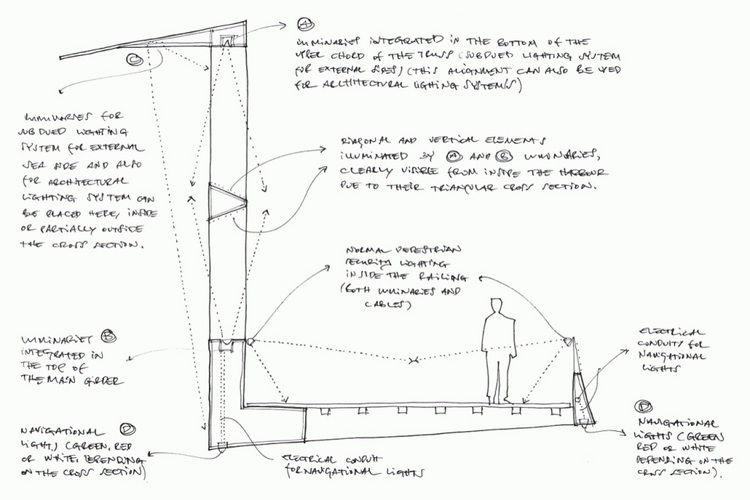 A
LUMINARIES INTEGRATED IN THE BOTTOM OF THE
UPPER CHORD OF THE TRUSS (SUBDUED LIGHTING SYSTEM
FOR EXTERNAL SIDES) (THIS ALIGNMENT CAN ALSO BE USED
FOR ARCHITECTURAL LIGHTING SYSTEM/S)
C
LUMINARIES FOR
SUBDUED LIGHTING
SYSTEM FOR EXTERNAL
SEA SIDE AND ALSO
FOR ARCHITECTURAL
LIGHTING SYSTEM CAN
BE PLACED HERE, INSIDE
OR PARTIALLY OUTSIDE
THE CROSS SECTION.
DIAGONAL AND VERTICAL ELEMENTS
ILLUMINATED BY A AND B LUMINARIES,
CLEARLY VISIBLE FROM INSIDE THE HARBOUR
DUE TO THEIR TRIANGULAR CROSS SECTION.
NORMAL PEDESTRIAN
SECURITY LIGHTING
INSIDE THE RAILING
(BOTH LUMINARIES AND
CABLES)
LUMINARIES B
INTEGRATED IN
THE TOP OF
THE MAIN GIRDER
ELECTRICAL
CONDUIT FOR
NAVIGATIONAL
LIGHTS
D
NAVIGATIONAL
LIGHTS (GREEN, RED
OR WHITE, DEPENDING
ON THE CROSS SECTION)
ELECTRICAL CONDUIT
FOR NAVIGATIONAL LIGHTS
D
NAVIGATIONAL
LIGHTS (GREEN
RED OR WHITE
DEPENDING ON THE
CROSS SECTION).